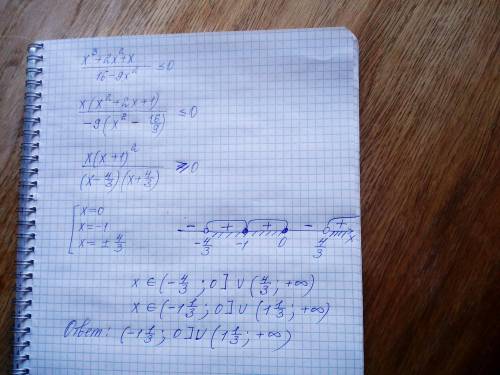 x³+2x²+x / 16-9x² ≤0
x(x²+2x+1) / -9(x² - 16/9) ≤0
x(x+1)² / (x-4/3)(x+4/3) ≥0
[ x=0
x=-1
x= ± 4/3
- + + - +
-4/3 -1 0 4/3 x
x ∈ (-4/3; 0] ∪ (4/3; +∞)
x ∈ (-1 1/3; 0] ∪ (1 1/3; +∞)
Ответ: (-1 1/3; 0] ∪ (1 1/3; +∞)